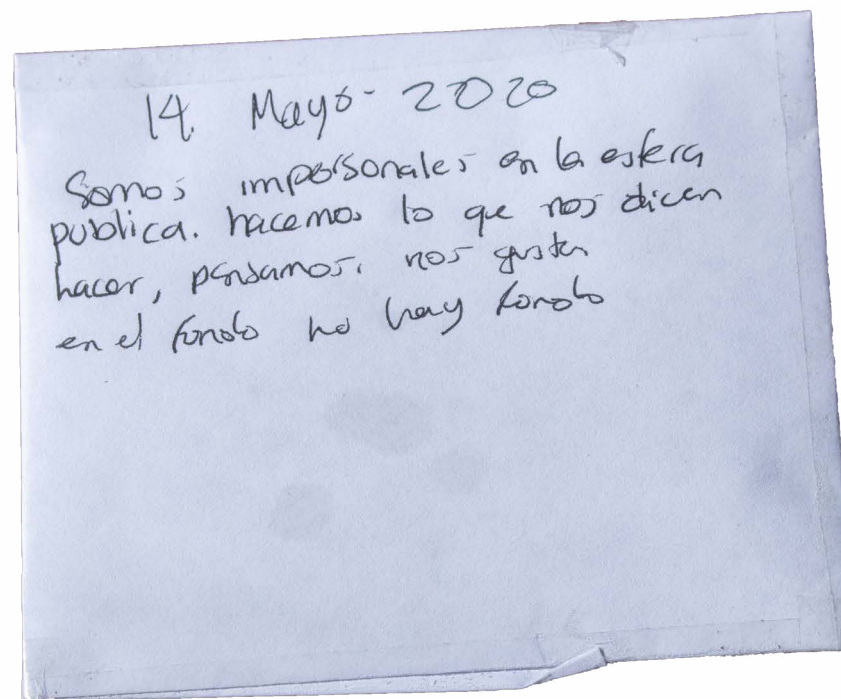 14. Mayo - 2020
Somos impersonales en la esfera
publica. hacemos lo que nos dicen
hacer, pensamos, nos gusta
en el fondo no hay fondo